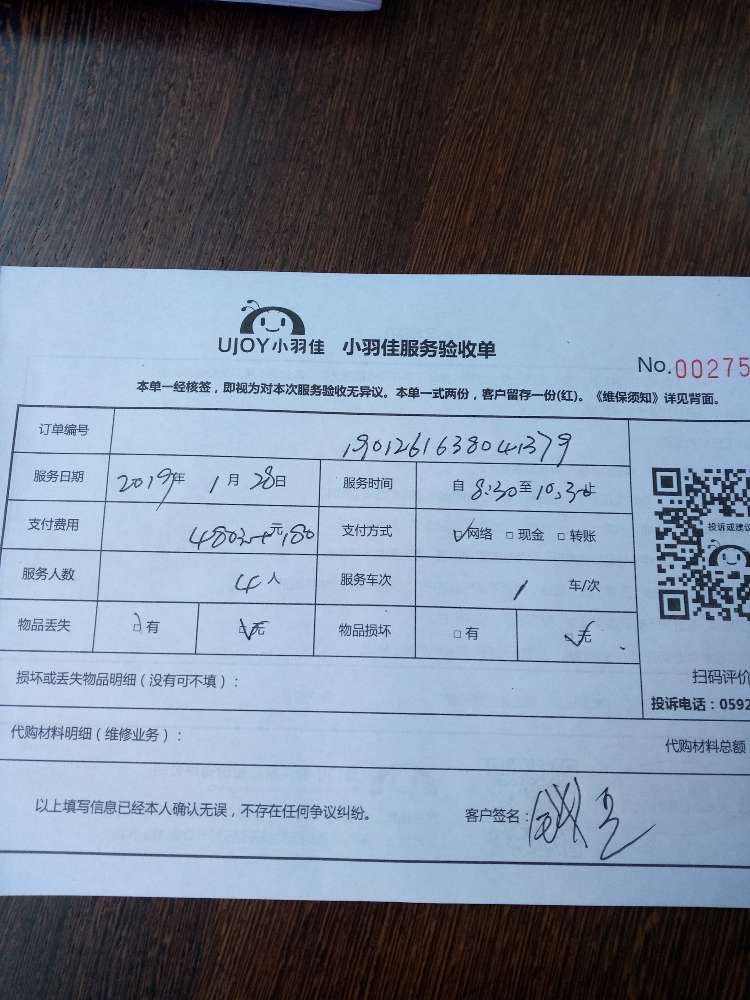 UJOY小羽佳 小羽佳服务验收单
No.00275
本单一经核签，即视为对本次服务验收无异议。本单一式两份，客户留存一份(红)。《维保须知》详见背面。
订单编号 1901261638041379
服务日期 2019年 1月 28日 服务时间 自 8:30至10:30止
支付费用 元 支付方式 ☑网络 □ 现金 □ 转账
投诉或建议
服务人数 4人 服务车次 1 车/次
物品丢失 □ 有 ☑无 物品损坏 □ 有 ☑无
扫码评价
损坏或丢失物品明细（没有可不填）：
投诉电话：0592
代购材料明细（维修业务）： 代购材料总额
以上填写信息已经本人确认无误，不存在任何争议纠纷。 客户签名：